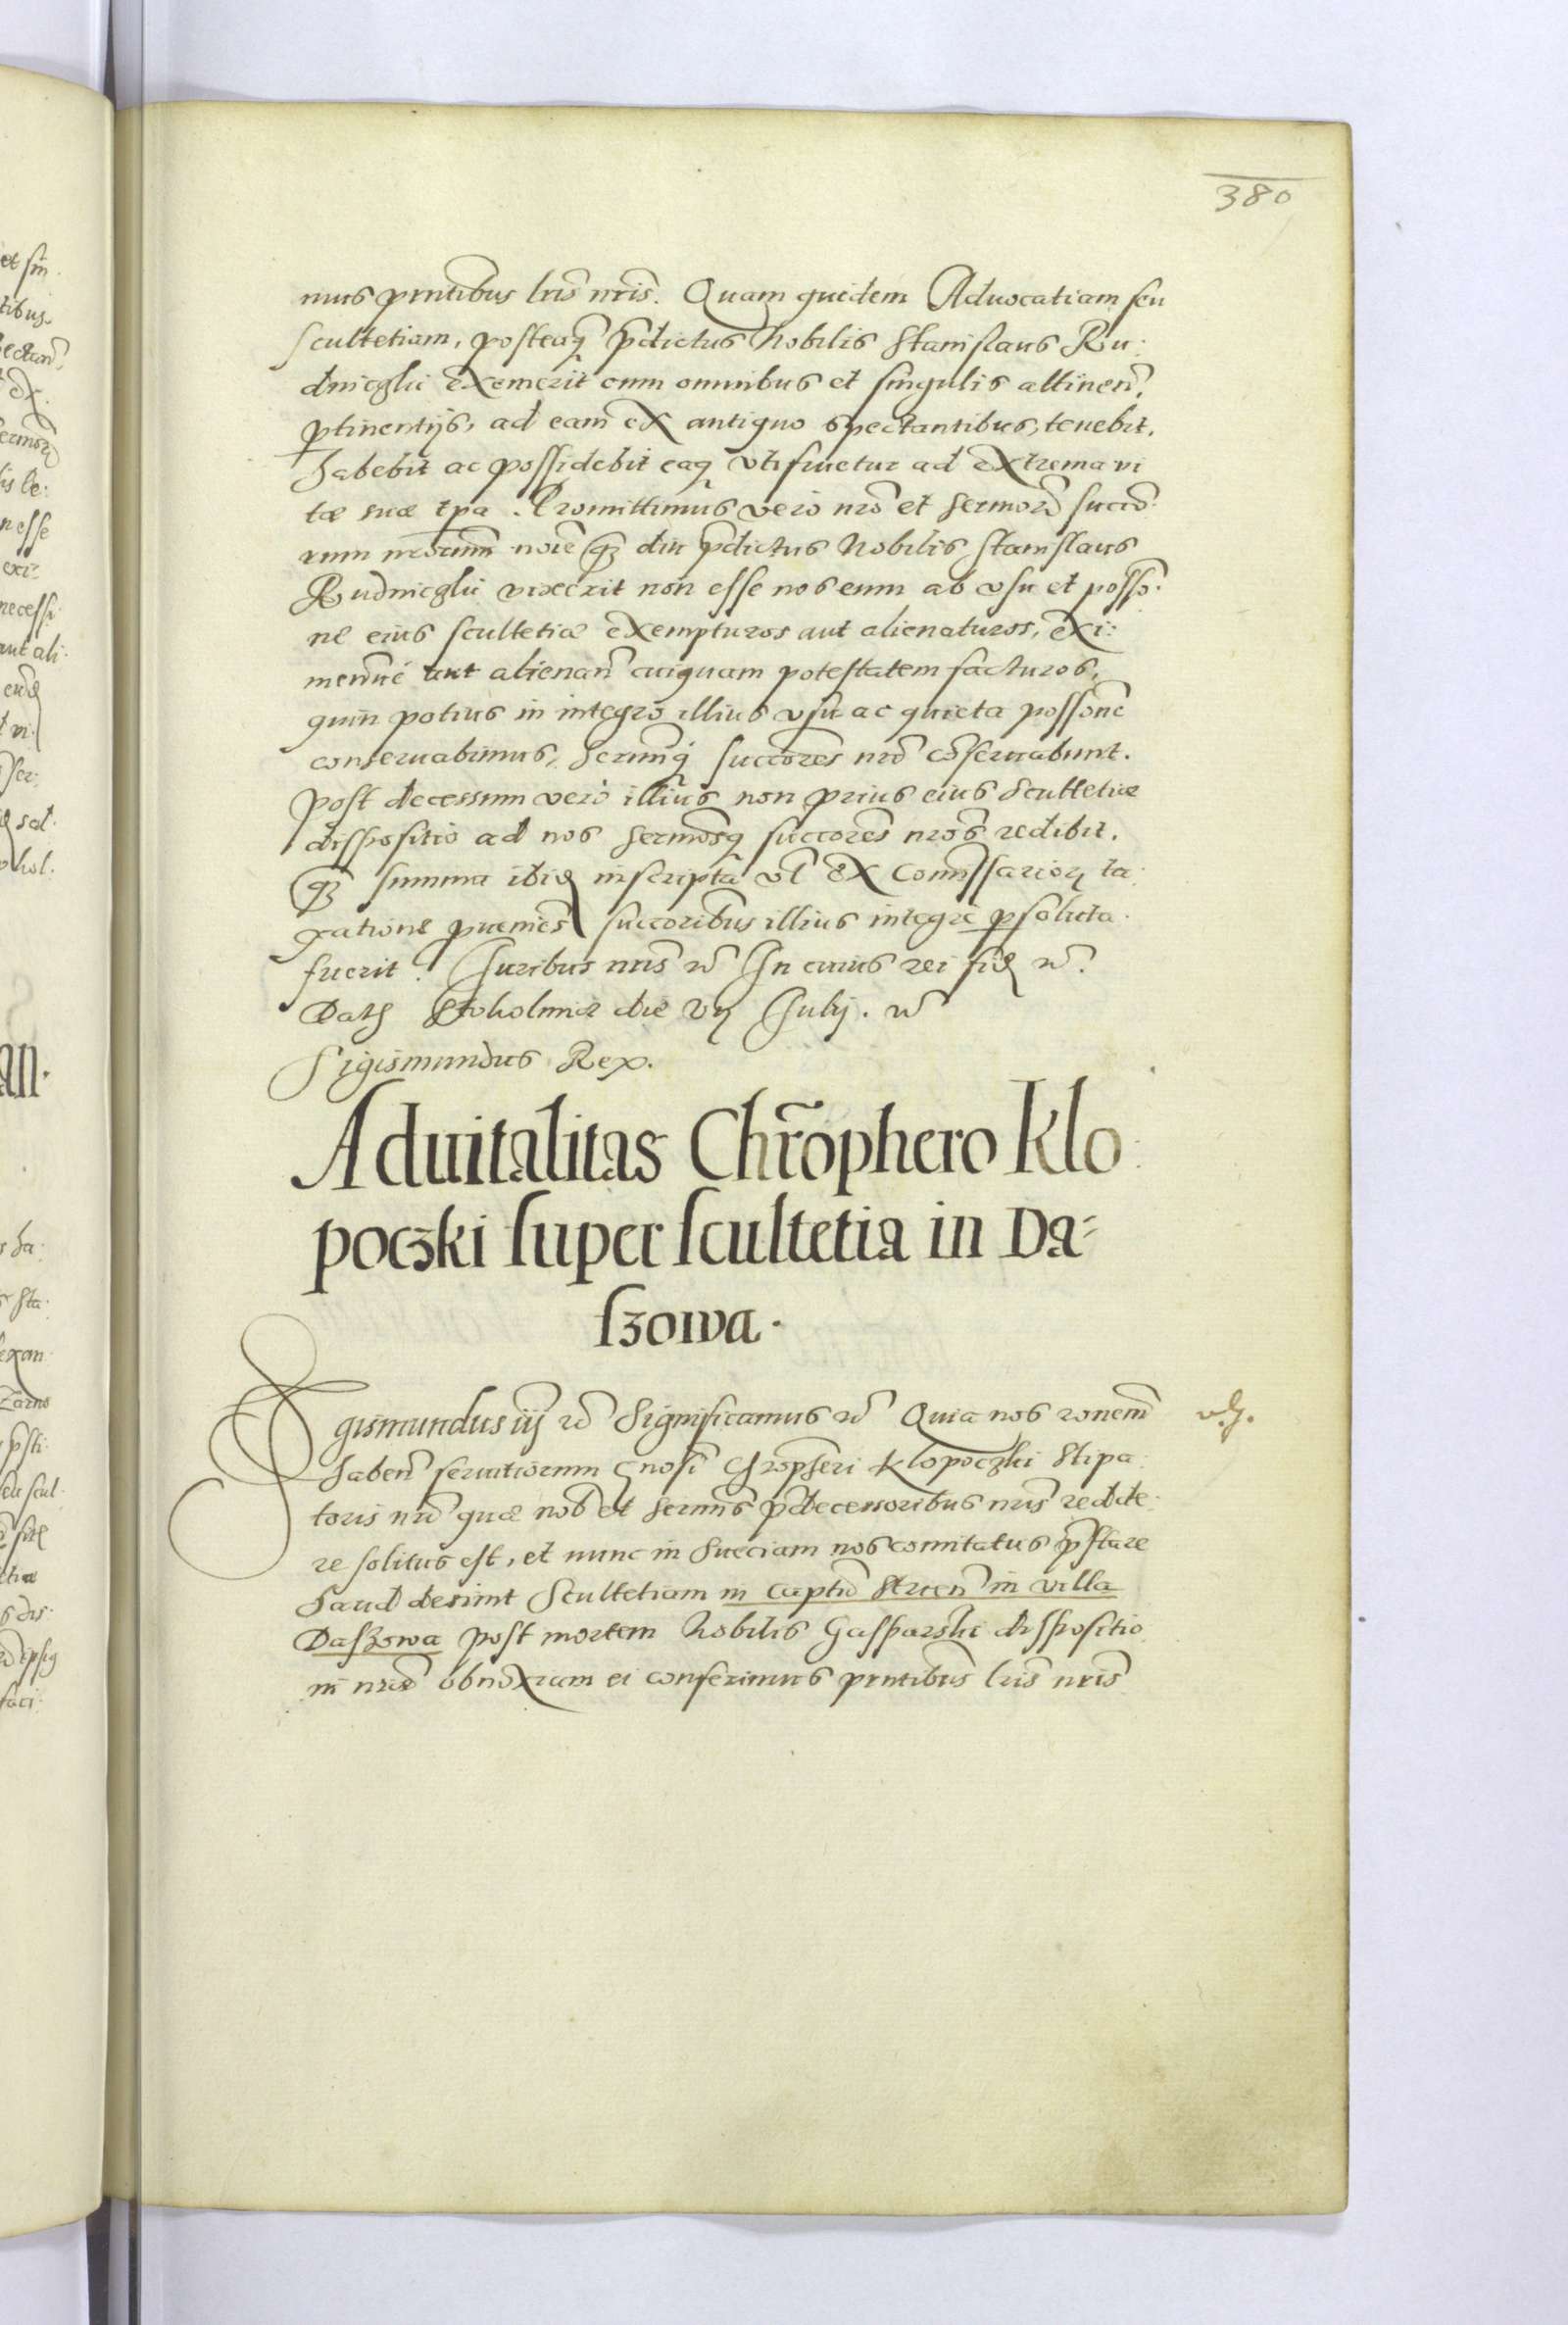 380
mus prntibus lris nris. Quam quidem Aduocatiam seu
scultetiam, posteaq pdictus Nobilis Stanislaus Ru:
dniczki exemerit cum omnibus et singulis attinen,
ptinentijs, ad eam ex antiquo spectantibus, tenebit,
habebit ac possidebit eaq vtifruetur ad extrema vi
tæ suæ tpa. Promittimus vero nro et Sermorum succo
rum nrorum noie qz diu pdictus Nobilis Stanislaus
Rudniczki vixerit non esse nos eum ab vsu et posso
ne eius scultetiæ exempturos aut alienaturos, exi:
mendi aut alienan cuiquam potestatem facturos,
quin potius in integro illius vsu ac quieta possone
conseruabimus, Sermiq succores nri conseruabunt.
post decessum vero illius non prius eius Scultetiæ
dispositio ad nos Sermosq succores nros redibit,
qz summa ibid inscripta vl ex Comissarior ta
xatione pueniens succoribus illius integre psoluta
fuerit. Iuribus nris etc In cuius rei fid etc.
Dat Stokolmiæ die Vij Iulij. etc
Sigismundus Rex.
Aduitalitas Chrophero Klo
poczki super scultetia in Da=
szowa.
Sigismundus iij etc Significamus etc Quia nos ronem
haben seruitiorum gnosi Chropheri Klopoczki Stipa
toris nri quæ nob et Sermis pdecessoribus nris redde
re solitus est, et nunc in Sueciam nos comitatus pstare
haud desinit Scultetiam in Captu Stricen in villa
Daszowa post mortem Nobilis Gasparski dispositio
ni nræ obnoxiam ei conferimus prntibus lris nris